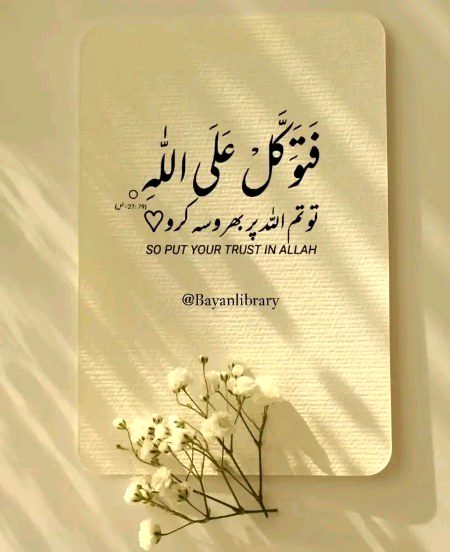 فَتَوَكَّلْ عَلَى اللّٰهِ
(نمل-27:79)
تو تم اللہ پر بھروسہ کرو♡
SO PUT YOUR TRUST IN ALLAH
@Bayanlibrary